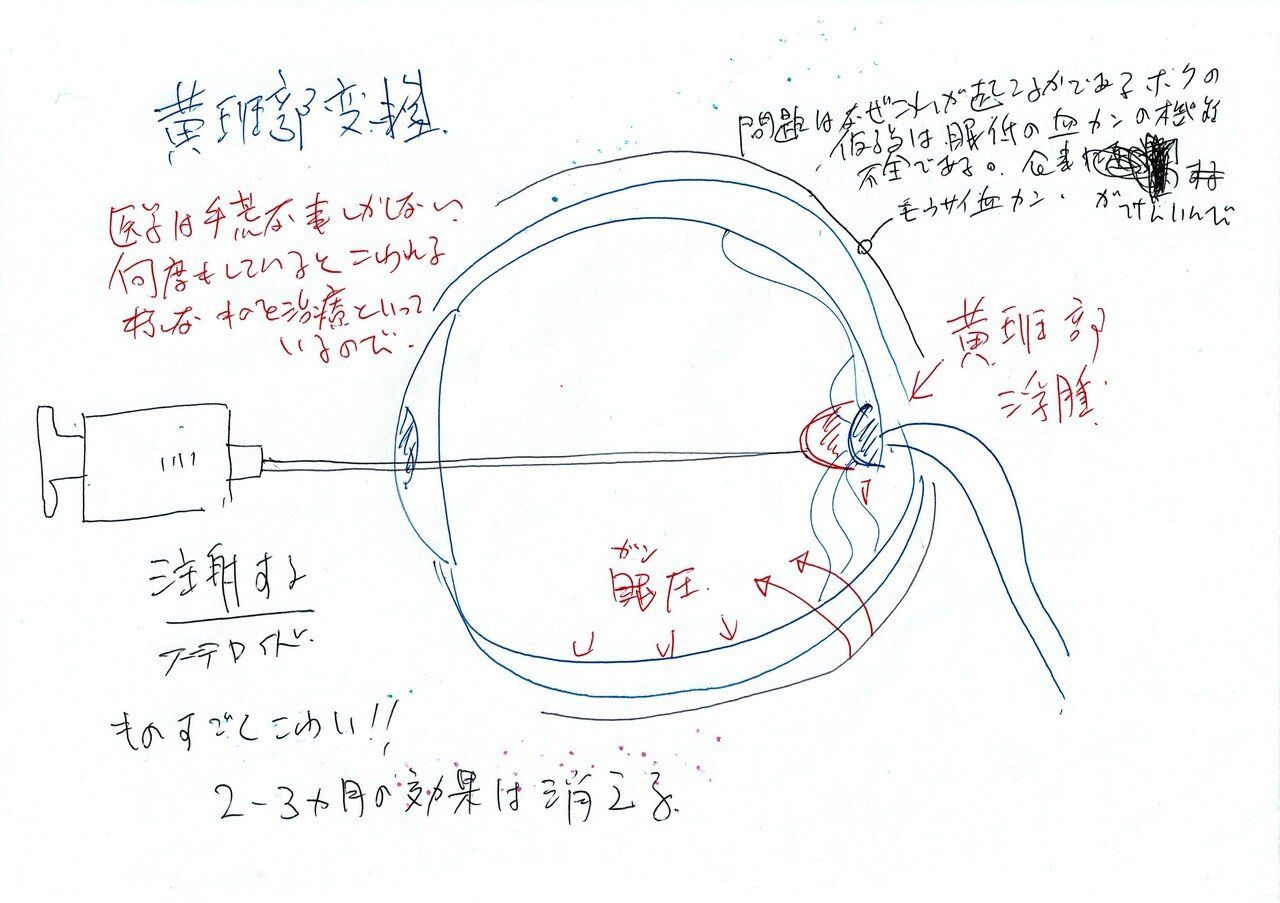 黄班部変性
問題はなぜこれが起こるかである ボクの
仮説は眼低の血カンの機能
不全である。
毛ウサイ血カン. がげんいんで
医学は手荒な事しかしない
何度もしているとこわれる
様な ものを治療といって
いるので.
黄班部
浮腫.
ガン
眼圧.
注射する
ステロイド.
ものすごくこわい!!
2-3ヵ月の効果は消える.